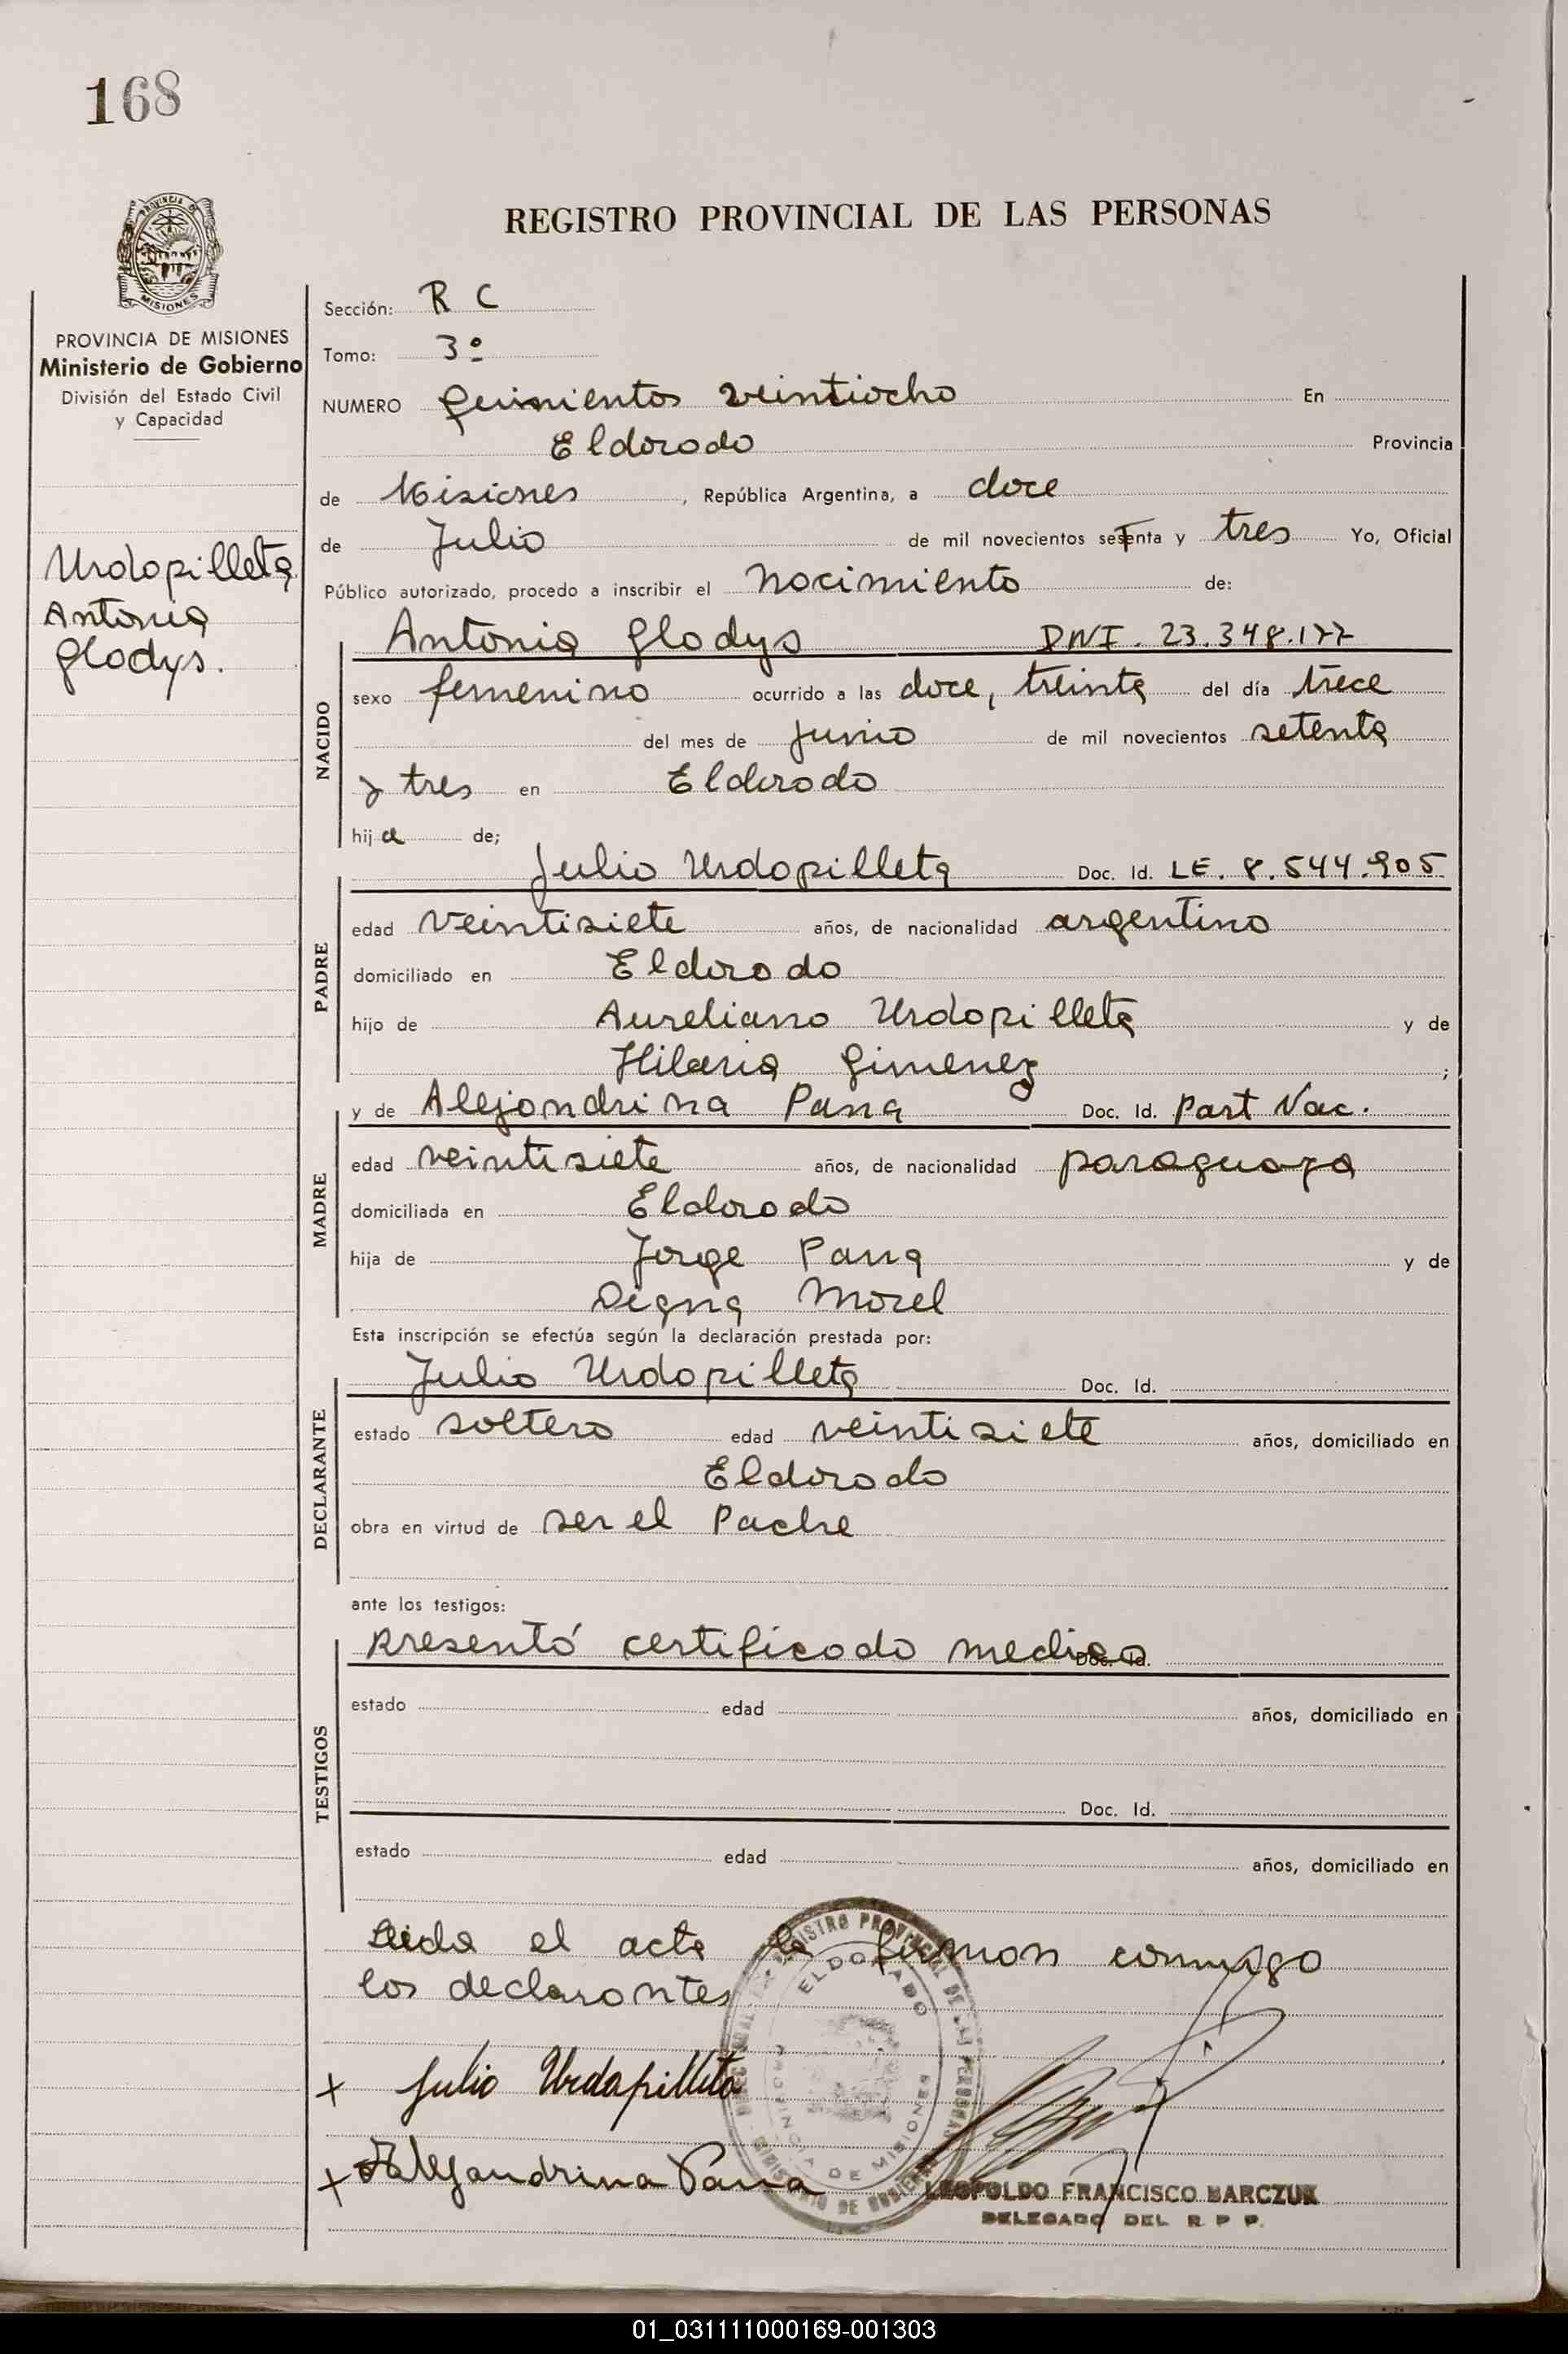 168
REGISTRO PROVINCIAL DE LAS PERSONAS
PROVINCIA DE MISIONES
MISIONES
PROVINCIA DE MISIONES
Ministerio de Gobierno
División del Estado Civil
y Capacidad
Urdapilleta
Antonia
Gladys.
Sección: R C
Tomo: 3º
NUMERO Quinientos veintiocho En
Eldorado Provincia
de Misiones, República Argentina, a doce
de Julio de mil novecientos setenta y tres Yo, Oficial
Público autorizado, procedo a inscribir el nacimiento de:
NACIDO
Antonia Gladys DNI. 23.348.177
sexo femenino ocurrido a las doce, treinta del día trece
del mes de Junio de mil novecientos setenta
y tres en Eldorado
hija de;
PADRE
Julio Urdapilleta Doc. Id. LE. 8.544.905
edad veintisiete años, de nacionalidad argentino
domiciliado en Eldorado
hijo de Aureliano Urdapilleta y de
Hilaria Gimenez ;
MADRE
y de Alejandrina Pana Doc. Id. Part Nac.
edad veintisiete años, de nacionalidad paraguaya
domiciliada en Eldorado
hija de Jorge Pana y de
Digna Morel
Esta inscripción se efectúa según la declaración prestada por:
DECLARANTE
Julio Urdapilleta Doc. Id.
estado soltero edad veintisiete años, domiciliado en
Eldorado
obra en virtud de ser el Padre
ante los testigos:
TESTIGOS
Presentó certificado medico Doc. Id.
estado edad años, domiciliado en
Doc. Id.
estado edad años, domiciliado en
Leida el acta la firman conmigo
los declarantes
x Julio Urdapilleta
x Alejandrina Pana
REGISTRO PROVINCIAL DE LAS PERSONAS
ELDORADO
PROVINCIA DE MISIONES
MINISTERIO DE GOBIERNO
LEOPOLDO FRANCISCO BARCZUK
DELEGADO DEL R P P.
01_031111000169-001303